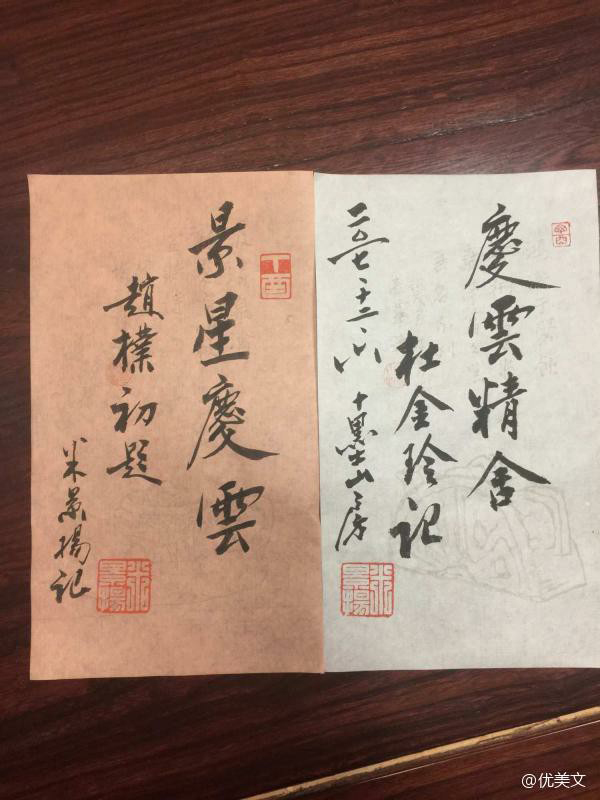 慶雲精舍
杜金玲記
二〇一七.十二.八 十墨山房
米景揚
丁酉
景星慶雲
趙樸初題
米景揚記
米景揚
@优美文